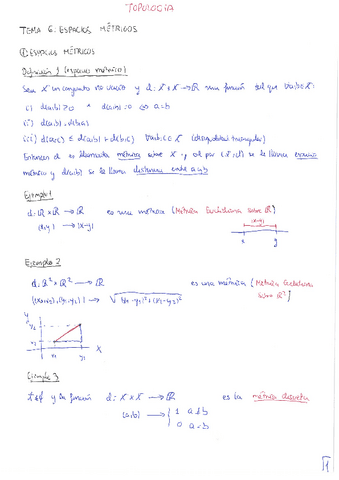 TOPOLOGÍA
TEMA 6: ESPACIOS MÉTRICOS
① ESPACIOS MÉTRICOS
Definición 1 (espacio métrico)
Sea X un conjunto no vacío y d: X x X → ℝ una función tal que ∀a,b∈X:
i) d(a,b) ≥ 0 ^ d(a,b) = 0 ⇔ a=b
ii) d(a,b) = d(b,a)
iii) d(a,c) ≤ d(a,b) + d(b,c) ∀a,b,c ∈ X (desigualdad triangular)
Entonces d es llamada métrica sobre X y al par (X,d) se le llama espacio
métrico y d(a,b) se le llama distancia entre a y b
Ejemplo 1
d: ℝ x ℝ → ℝ es una métrica (Métrica Euclidiana sobre ℝ)
(x,y) → |x-y|
|x-y|
x y
Ejemplo 2
d: ℝ² x ℝ² → ℝ es una métrica (Métrica Euclidiana
sobre ℝ²)
((x₁,x₂), (y₁,y₂)) → √(x₁-y₁)²+(x₂-y₂)²
y
y₂
x₂
x₁ y₁ x
Ejemplo 3
X ≠ ∅ y la función d: X x X → ℝ es la métrica discreta
(a,b) → { 1 a≠b
0 a=b
1